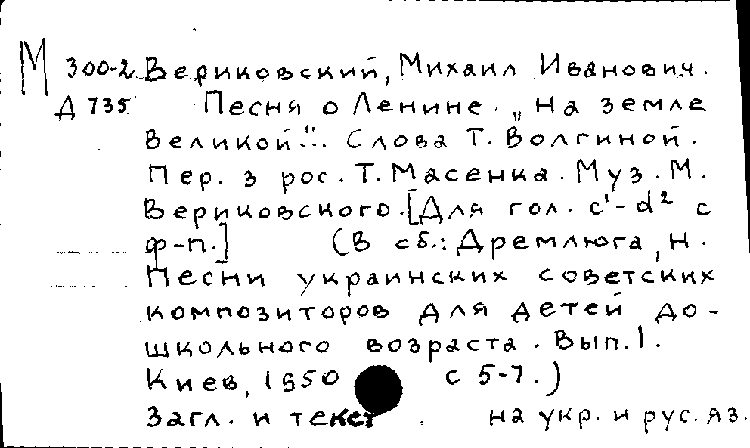 М 300-2 Вериковский, Михаил Иванович.
Д 735 Песня о Ленине. „На земле
великой..." Слова Т. Волгиной.
Пер. з рос. Т. Масенка. Муз. М.
Вериковского. [Для гол. c¹-d² с
ф-п.] (В сб.: Дремлюга, Н.
Песни украинских советских
композиторов для детей до-
школьного возраста. Вып. 1.
Киев, 1950 с 5-7.)
Загл. и текст . на укр. и рус. яз.